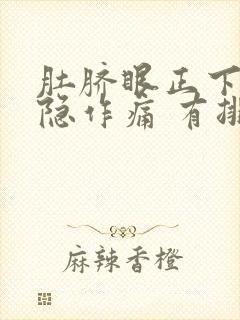 肚脐眼正下
隐作痛 有排
麻辣香橙